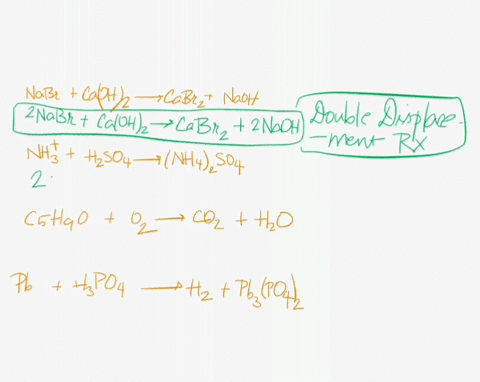 NaBr + Ca(OH)₂ → CaBr₂ + NaOH
2NaBr + Ca(OH)₂ → CaBr₂ + 2NaOH
Double Displace-
-ment Rx
NH₃⁺ + H₂SO₄ → (NH₄)₂SO₄
2
C5H9O + O₂ → CO₂ + H₂O
Pb + H₃PO₄ → H₂ + Pb₃(PO₄)₂